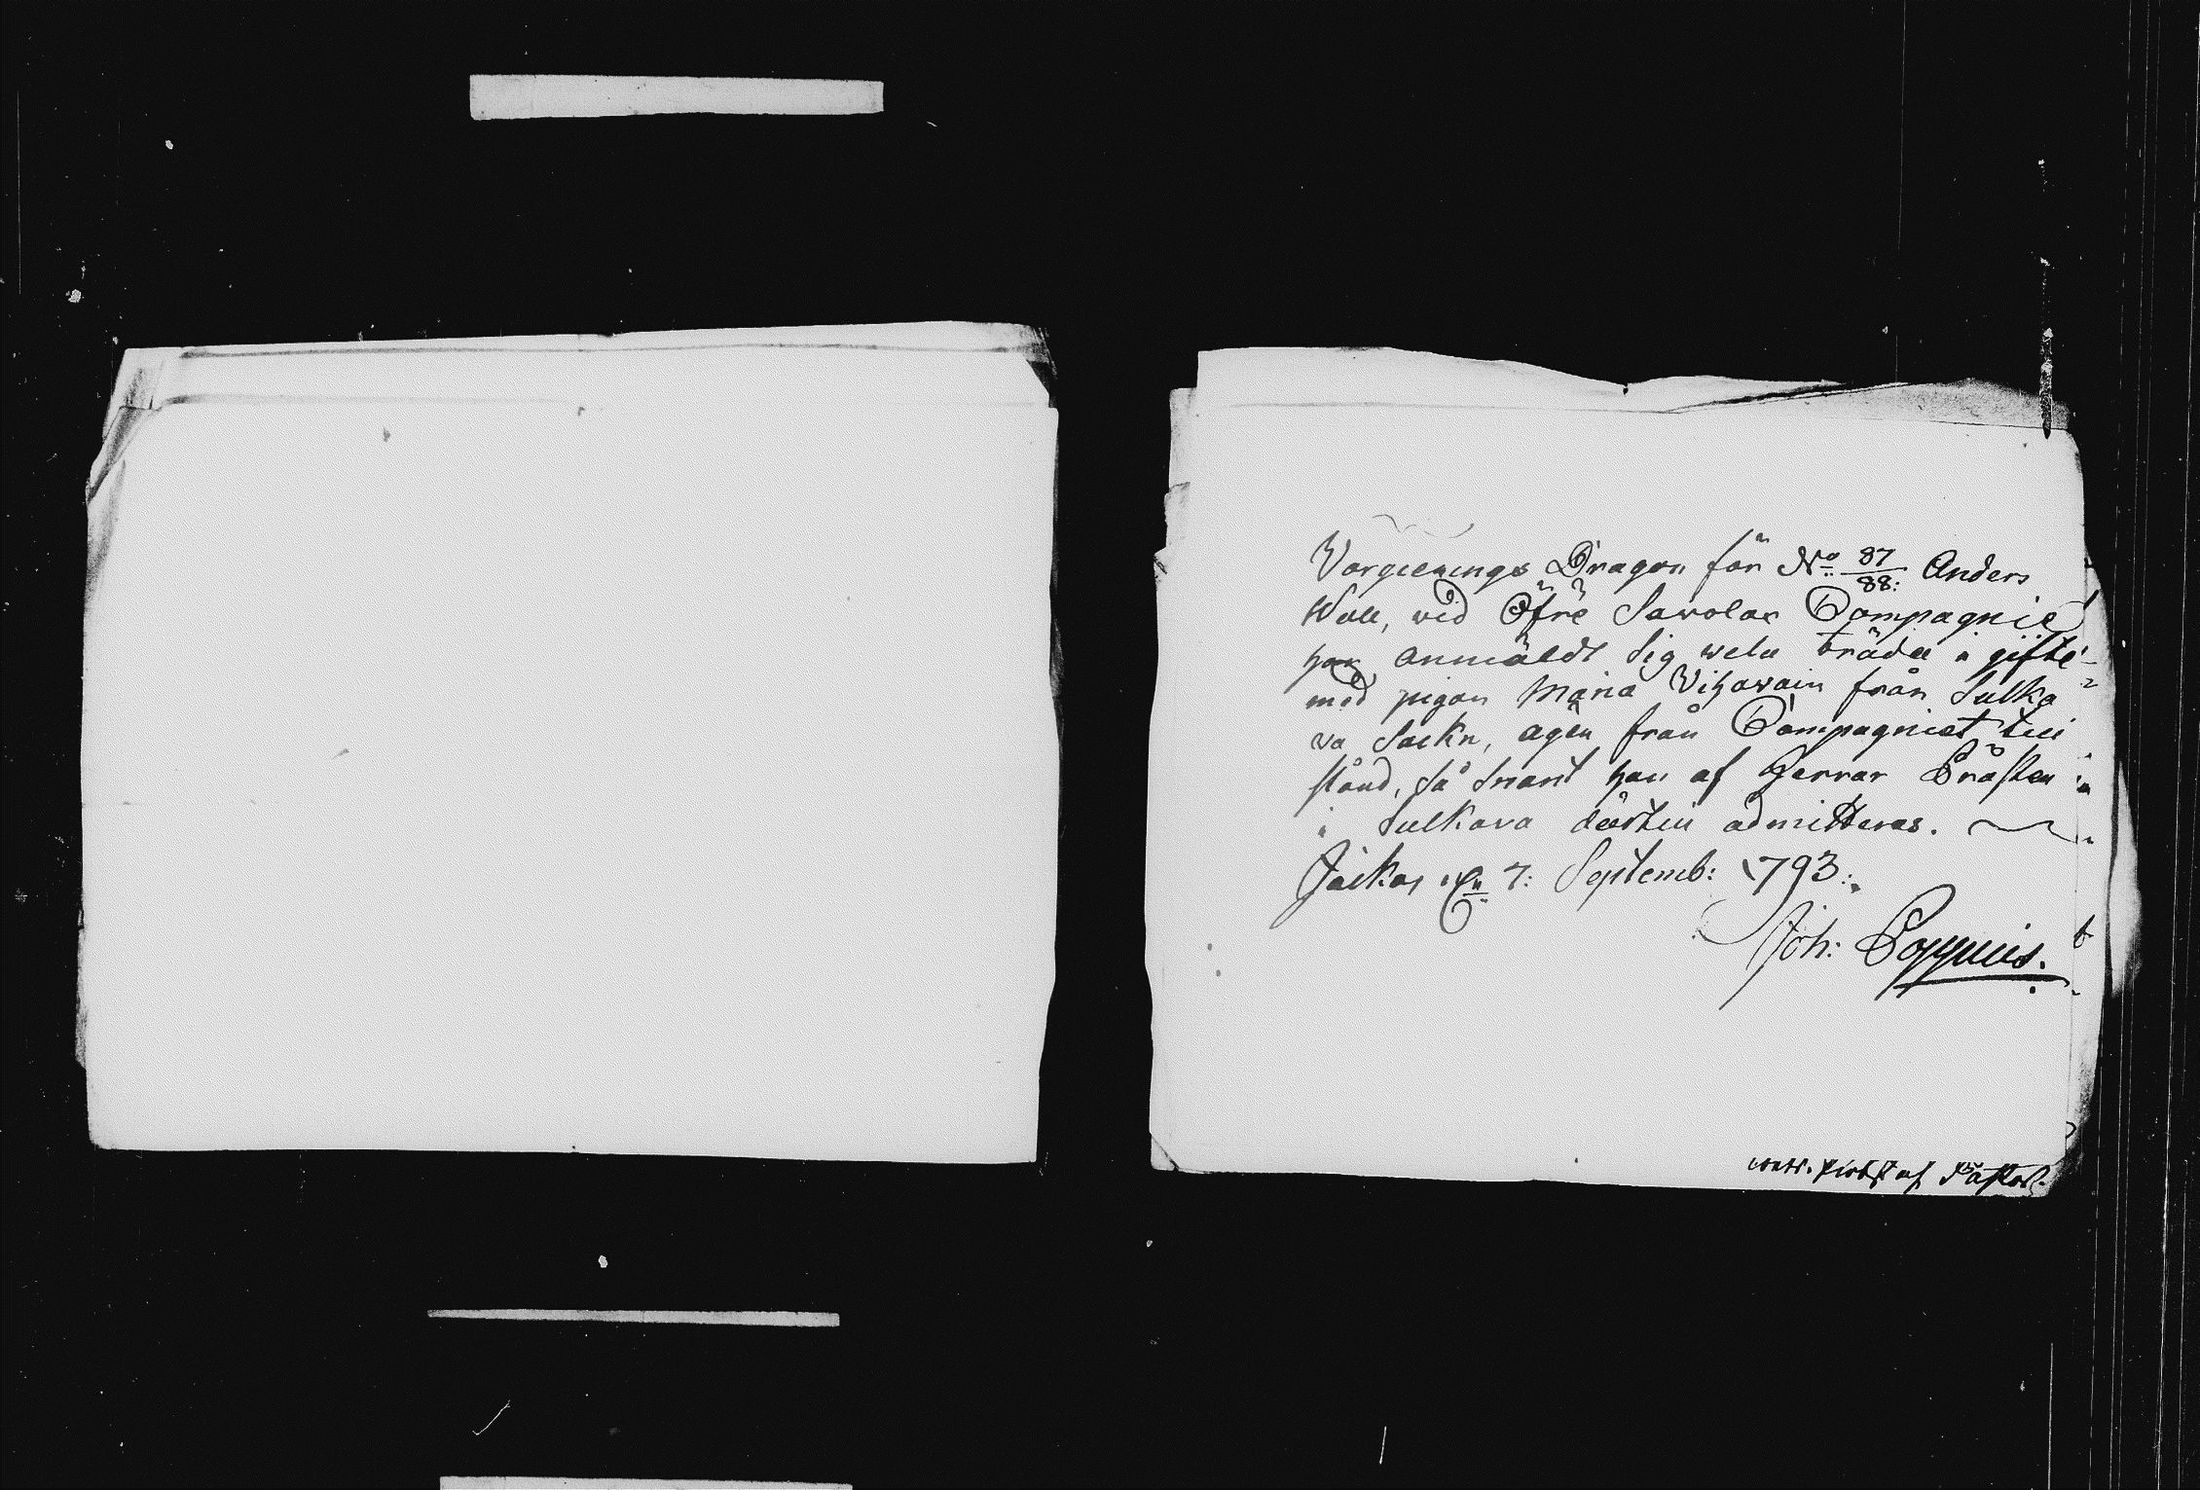 Vargerings Dragon för No 87/88: Anders
Wall, wid Öfre Sawolax Compagnie
har anmäldt sig wela träda i gifte
med pigan Maria Vihavain från Sulka
va Sockn, ägen från Compagniet till
stånd, så snart han af Herrar Präster
i Sulkava därtill admitteras.
Jäckas den 7: Septemb: 1793:
Joh: Poppius.